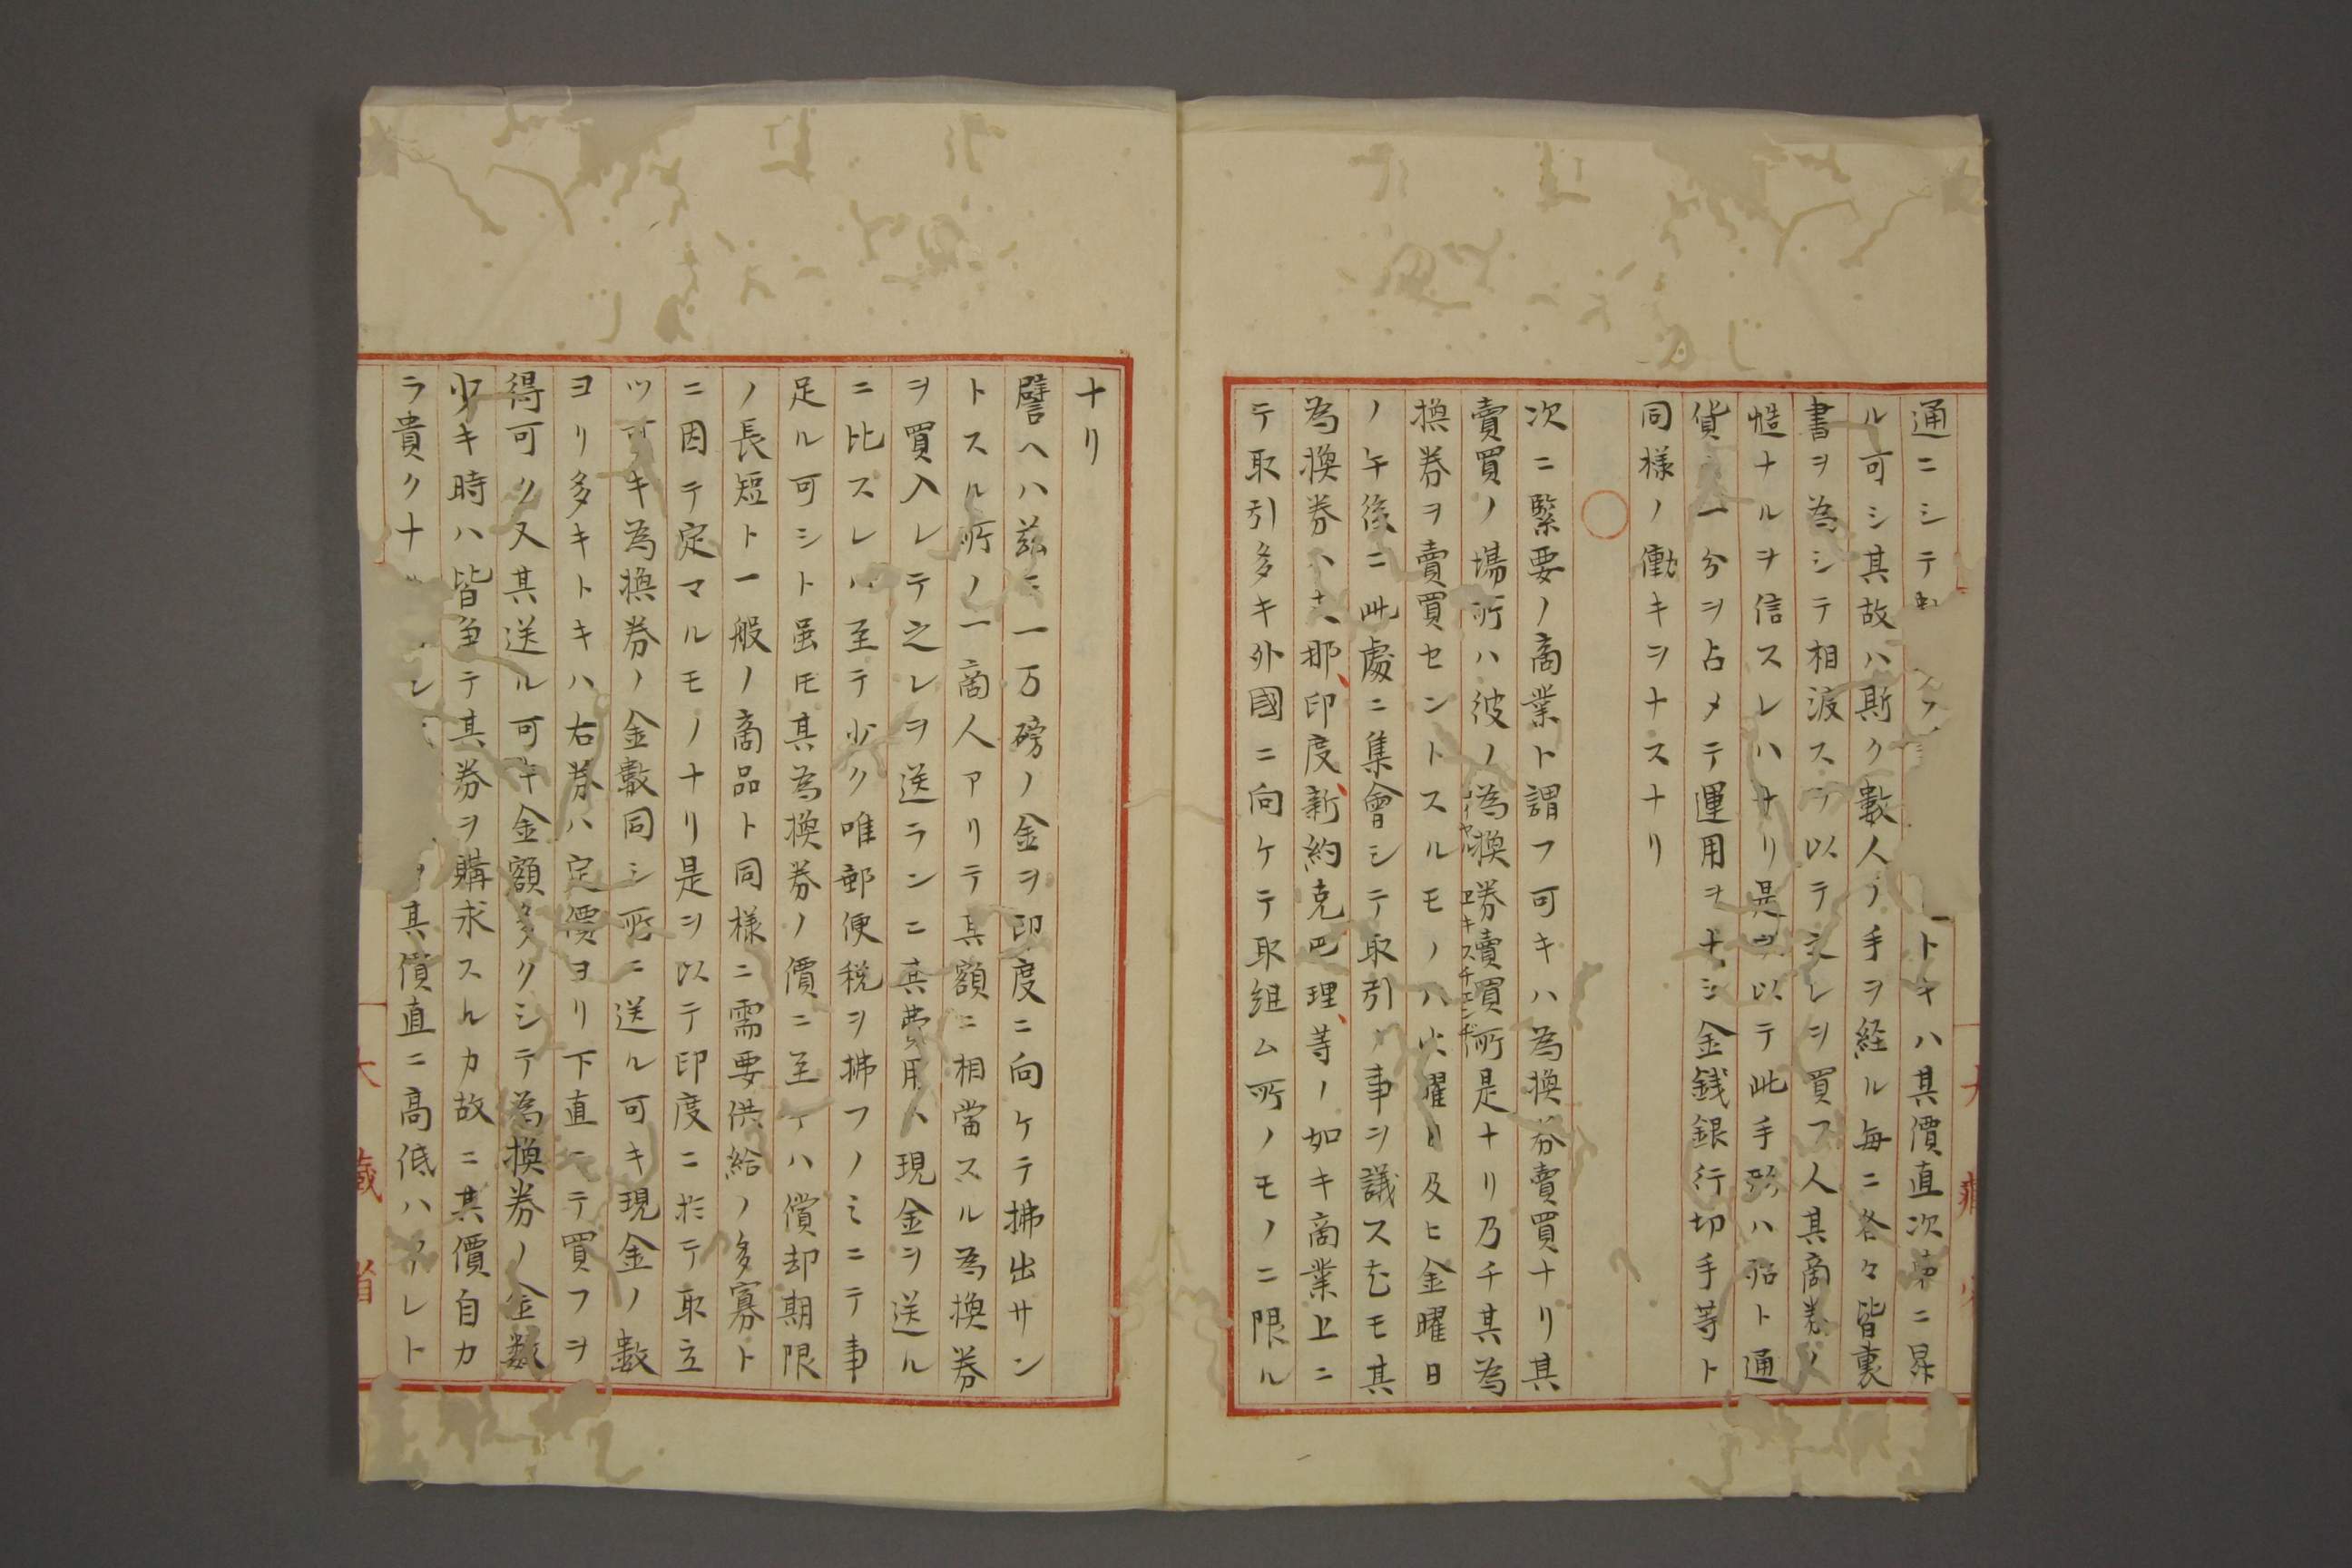 通ニシテ トキハ其價直次第ニ昇
ル可シ其故ハ斯ク數人ノ手ヲ経ル毎ニ各々皆裏
書ヲ為シテ相渡スヲ以テ之レヲ買フ人其商券ノ
慥ナルヲ信スレハナリ是ヲ以テ此手形ハ殆ト通
貨ノ一分ヲ占メテ運用ヲナシ金銭銀行切手等ト
同様ノ働キヲナスナリ
○
次ニ緊要ノ商業ト謂フ可キハ為換券賣買ナリ其
賣買ノ場所ハ彼ノ為換券賣買所是ナリ乃チ其為
換券ヲ賣買セントスルモノハ火曜日及ヒ金曜日
ノ午後ニ此處ニ集會シテ取引ノ事ヲ議ス尤モ其
為換券ハ支那、印度、新約克巴理、等ノ如キ商業上ニ
テ取引多キ外國ニ向ケテ取組ム所ノモノニ限ル
ナリ
譬ヘハ茲ニ一万磅ノ金ヲ印度ニ向ケテ拂出サン
トスル所ノ一商人アリテ其額ニ相當スル為換券
ヲ買入レテ之レヲ送ランニ其費用ハ現金ヲ送ル
ニ比スレハ至テ少ク唯郵便税ヲ拂フノミニテ事
足ル可シト虽モ其為換券ノ價ニ至テハ償却期限
ノ長短ト一般ノ商品ト同様ニ需要供給ノ多寡ト
ニ因テ定マルモノナリ是ヲ以テ印度ニ於テ取立
ツ可キ為換券ノ金數同シ所ニ送ル可キ現金ノ數
ヨリ多キトキハ右券ハ定價ヨリ下直ニテ買フヲ
得可ク又其送ル可キ金額多クシテ為換券ノ金数
少キ時ハ皆争テ其券ヲ購求スルカ故ニ其價自カ
ラ貴クナ 其價直ニ高低ハアレト
大藏省